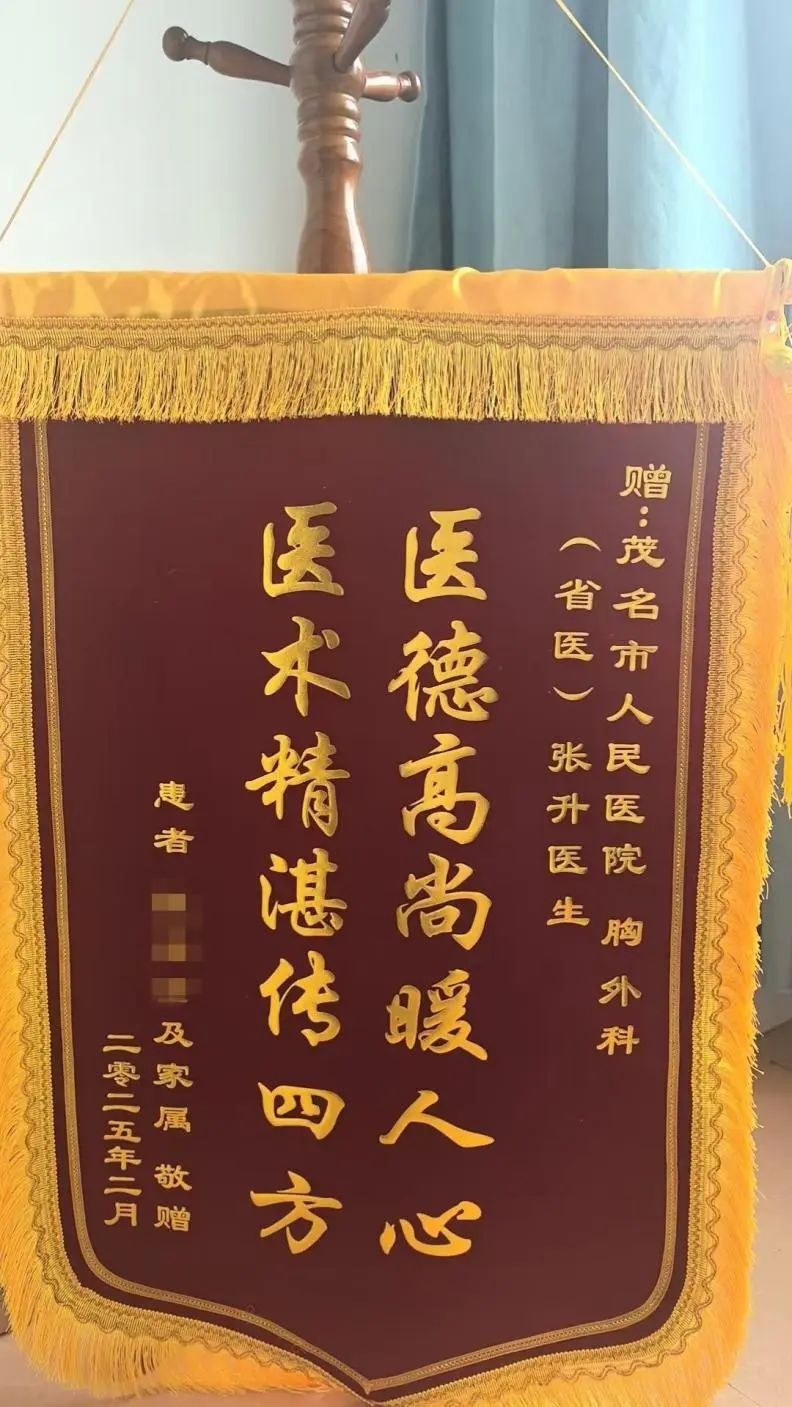 赠：茂名市人民医院 胸外科
（省医）张升医生
医德高尚暖人心
医术精湛传四方
患者 及家属 敬赠
二零二五年二月